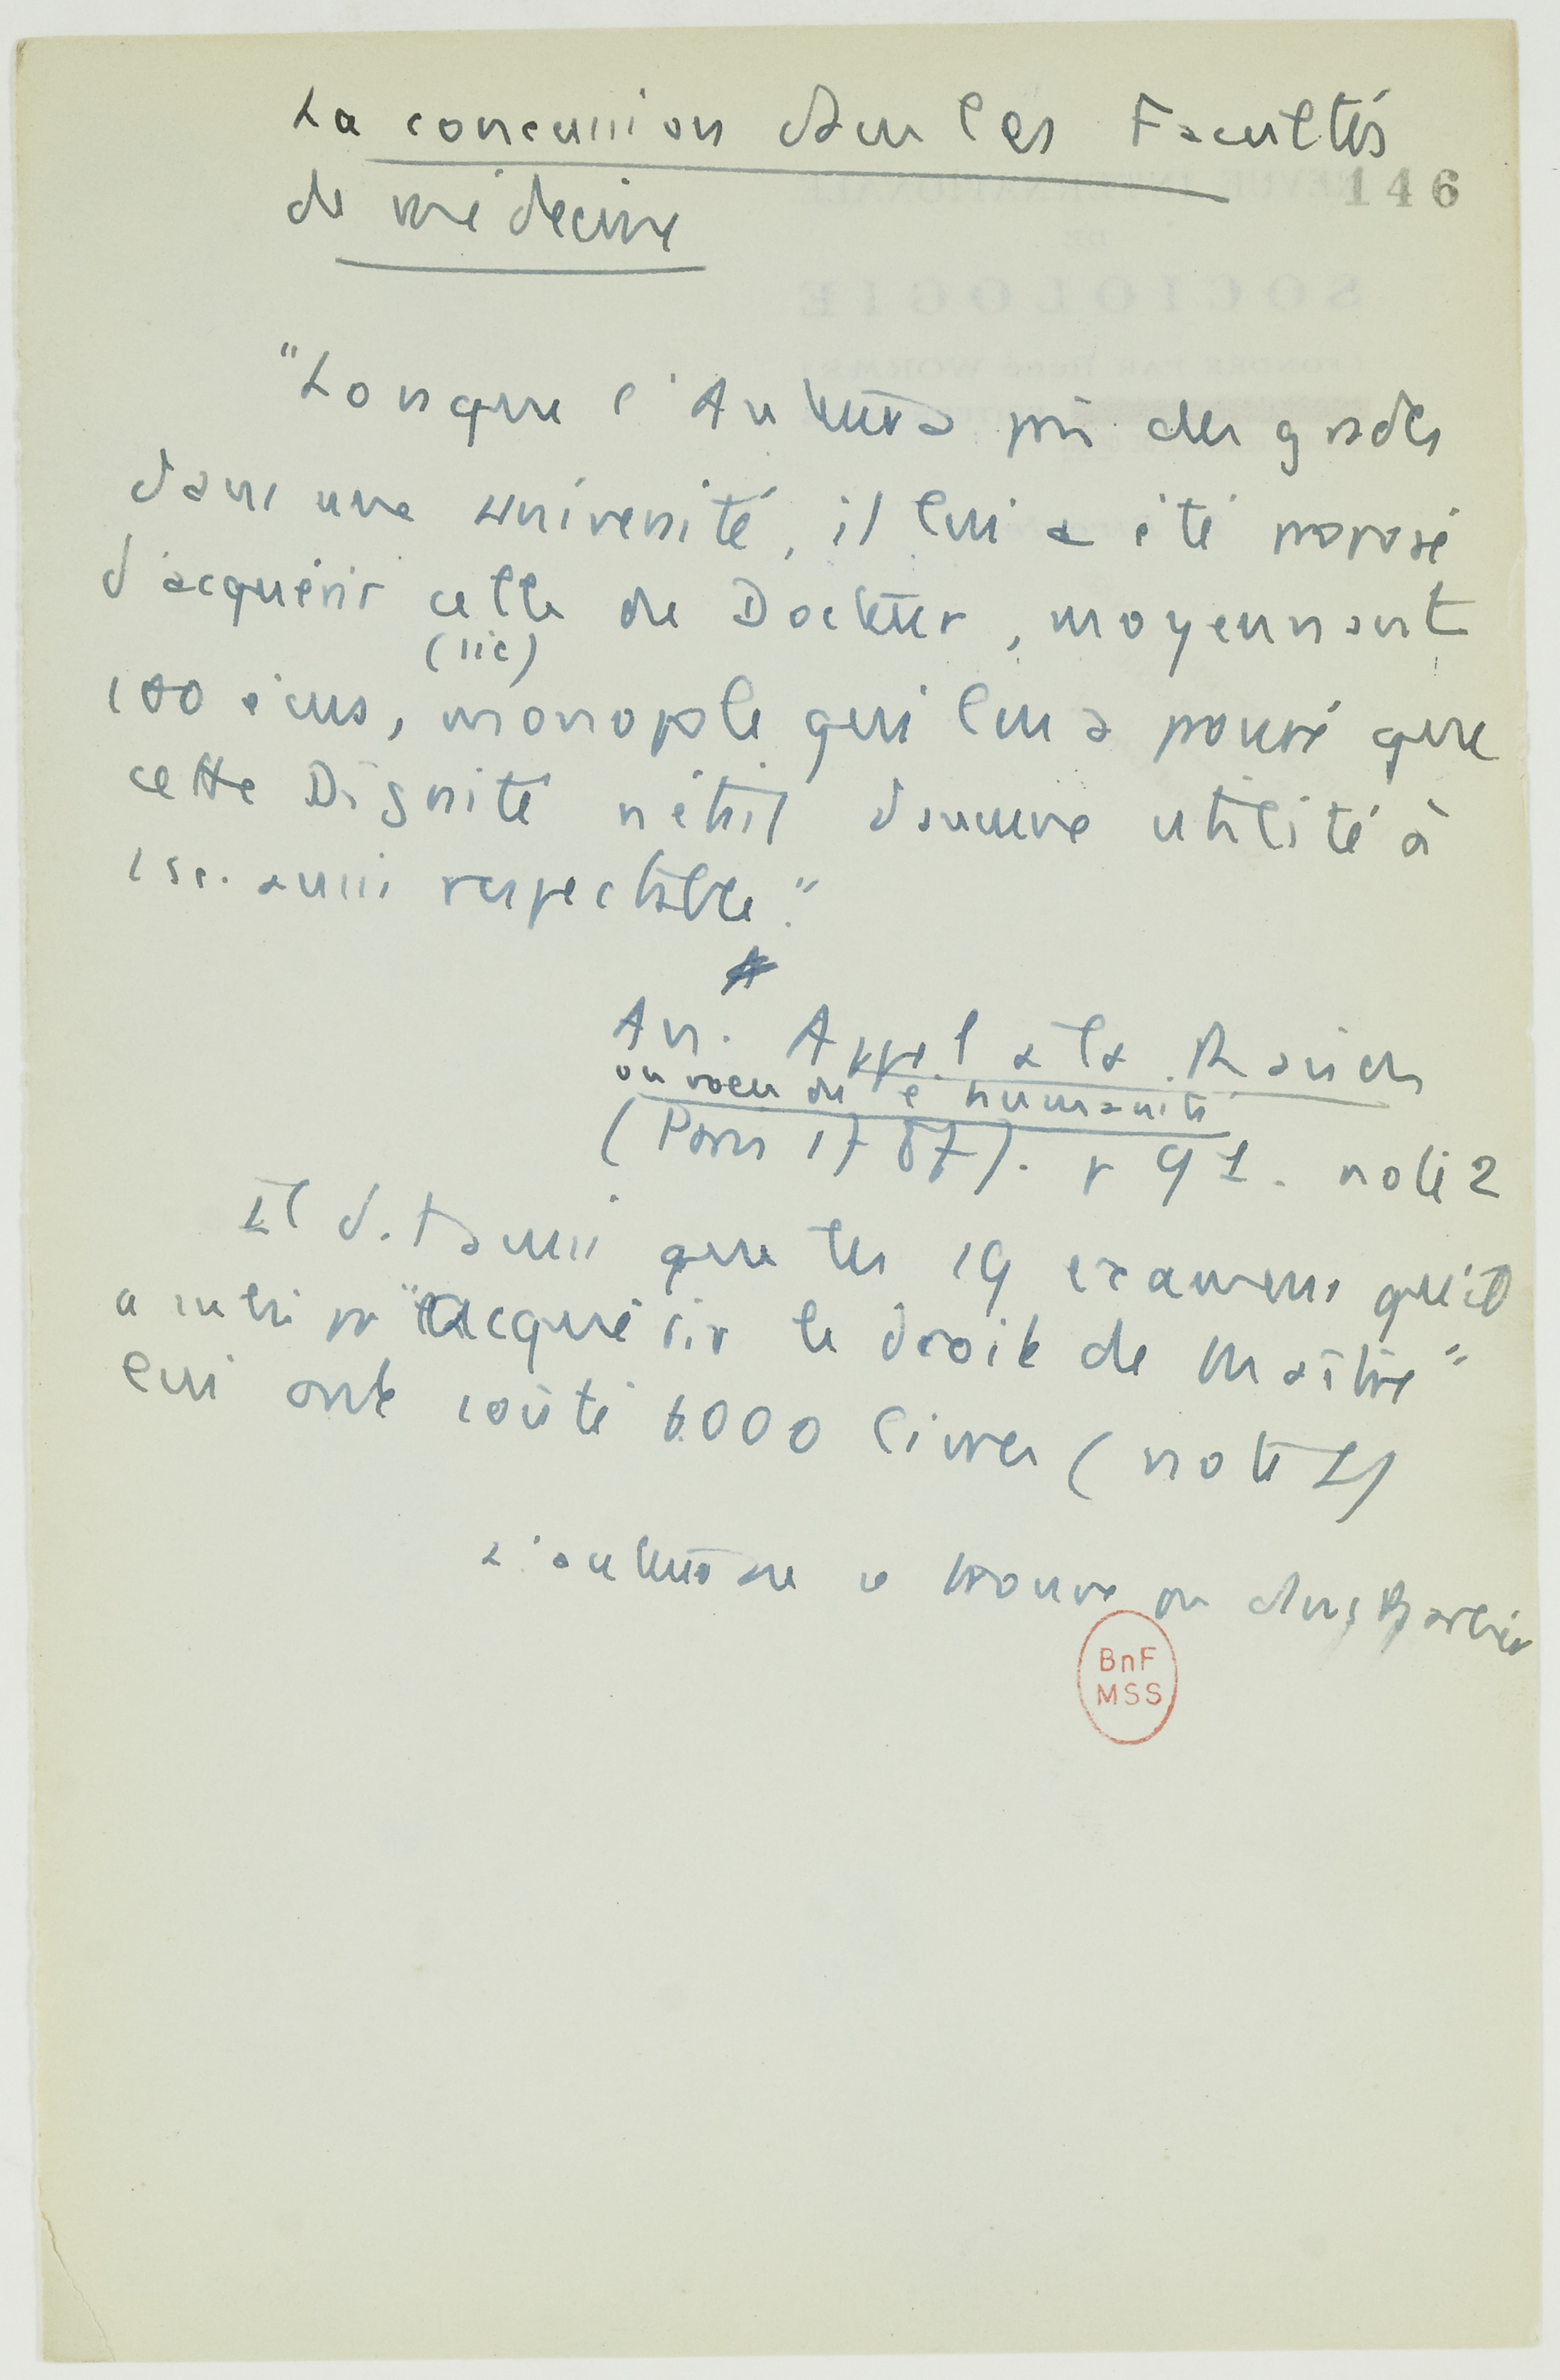 La concussion dans les Facultés
146
de médecine
"Lorsque l'Auteur a pris des grades
dans une université, il lui a été proposé
d'acquérir celle de Docteur, moyennant
(sic)
100 écus, monopole qui lui a prouvé que
cette Dignité n'était d'aucune utilité à
aussi respectable."
An. Appel à la Raison
ou voeu de l'humanité
(Paris 1787). p 91. note 2
Il d. aussi que les 19 examens qu'il
a subi pr "acquérir le droit de Maître"
lui ont coûté 6000 livres (note 1)
L'auteur ne se trouve pas dans Barbier
BnF
MSS